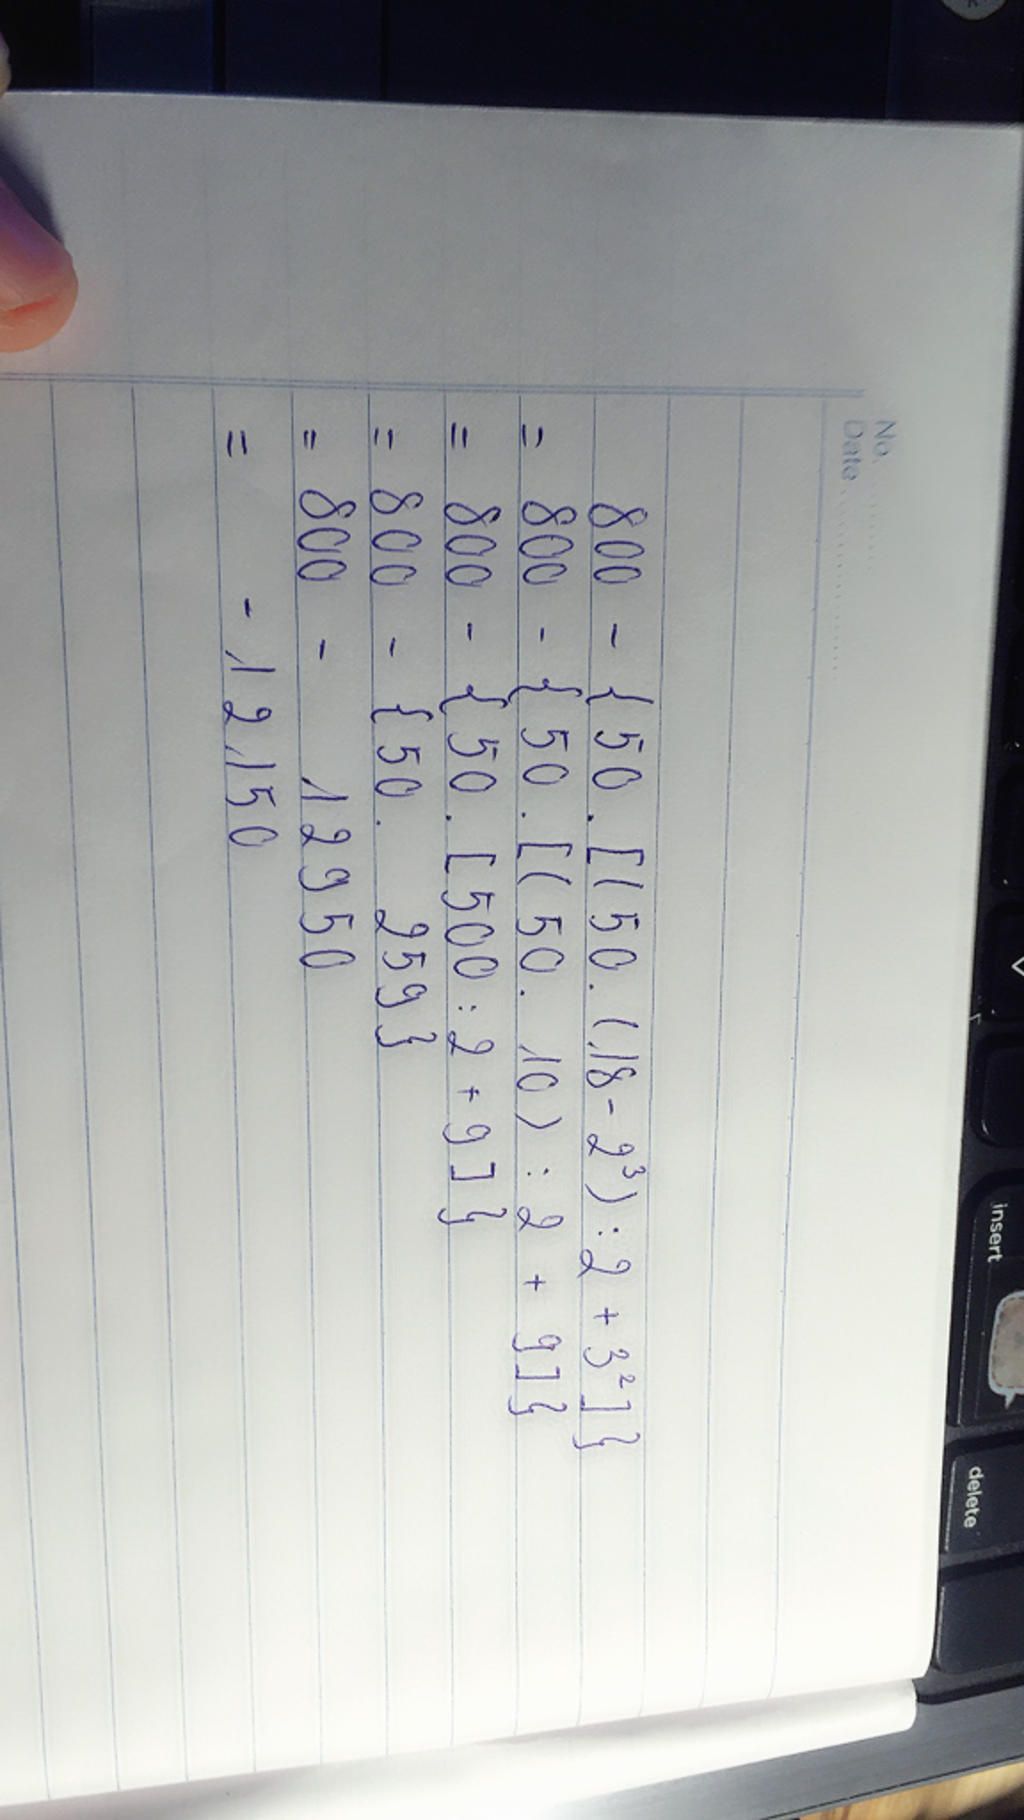 No.
Date
800 - {50.[(50.(18-2³):2+3²]}
= 800 - {50.[(50. 10) : 2 + 9]}
= 800 - {50.[500:2+9]}
= 800 - {50. 259}
= 800 - 12950
= -12150
insert
delete